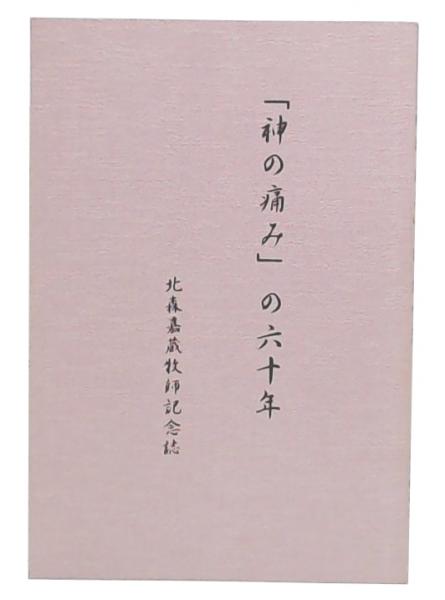 「神の痛み」の六十年
北森嘉蔵牧師記念誌